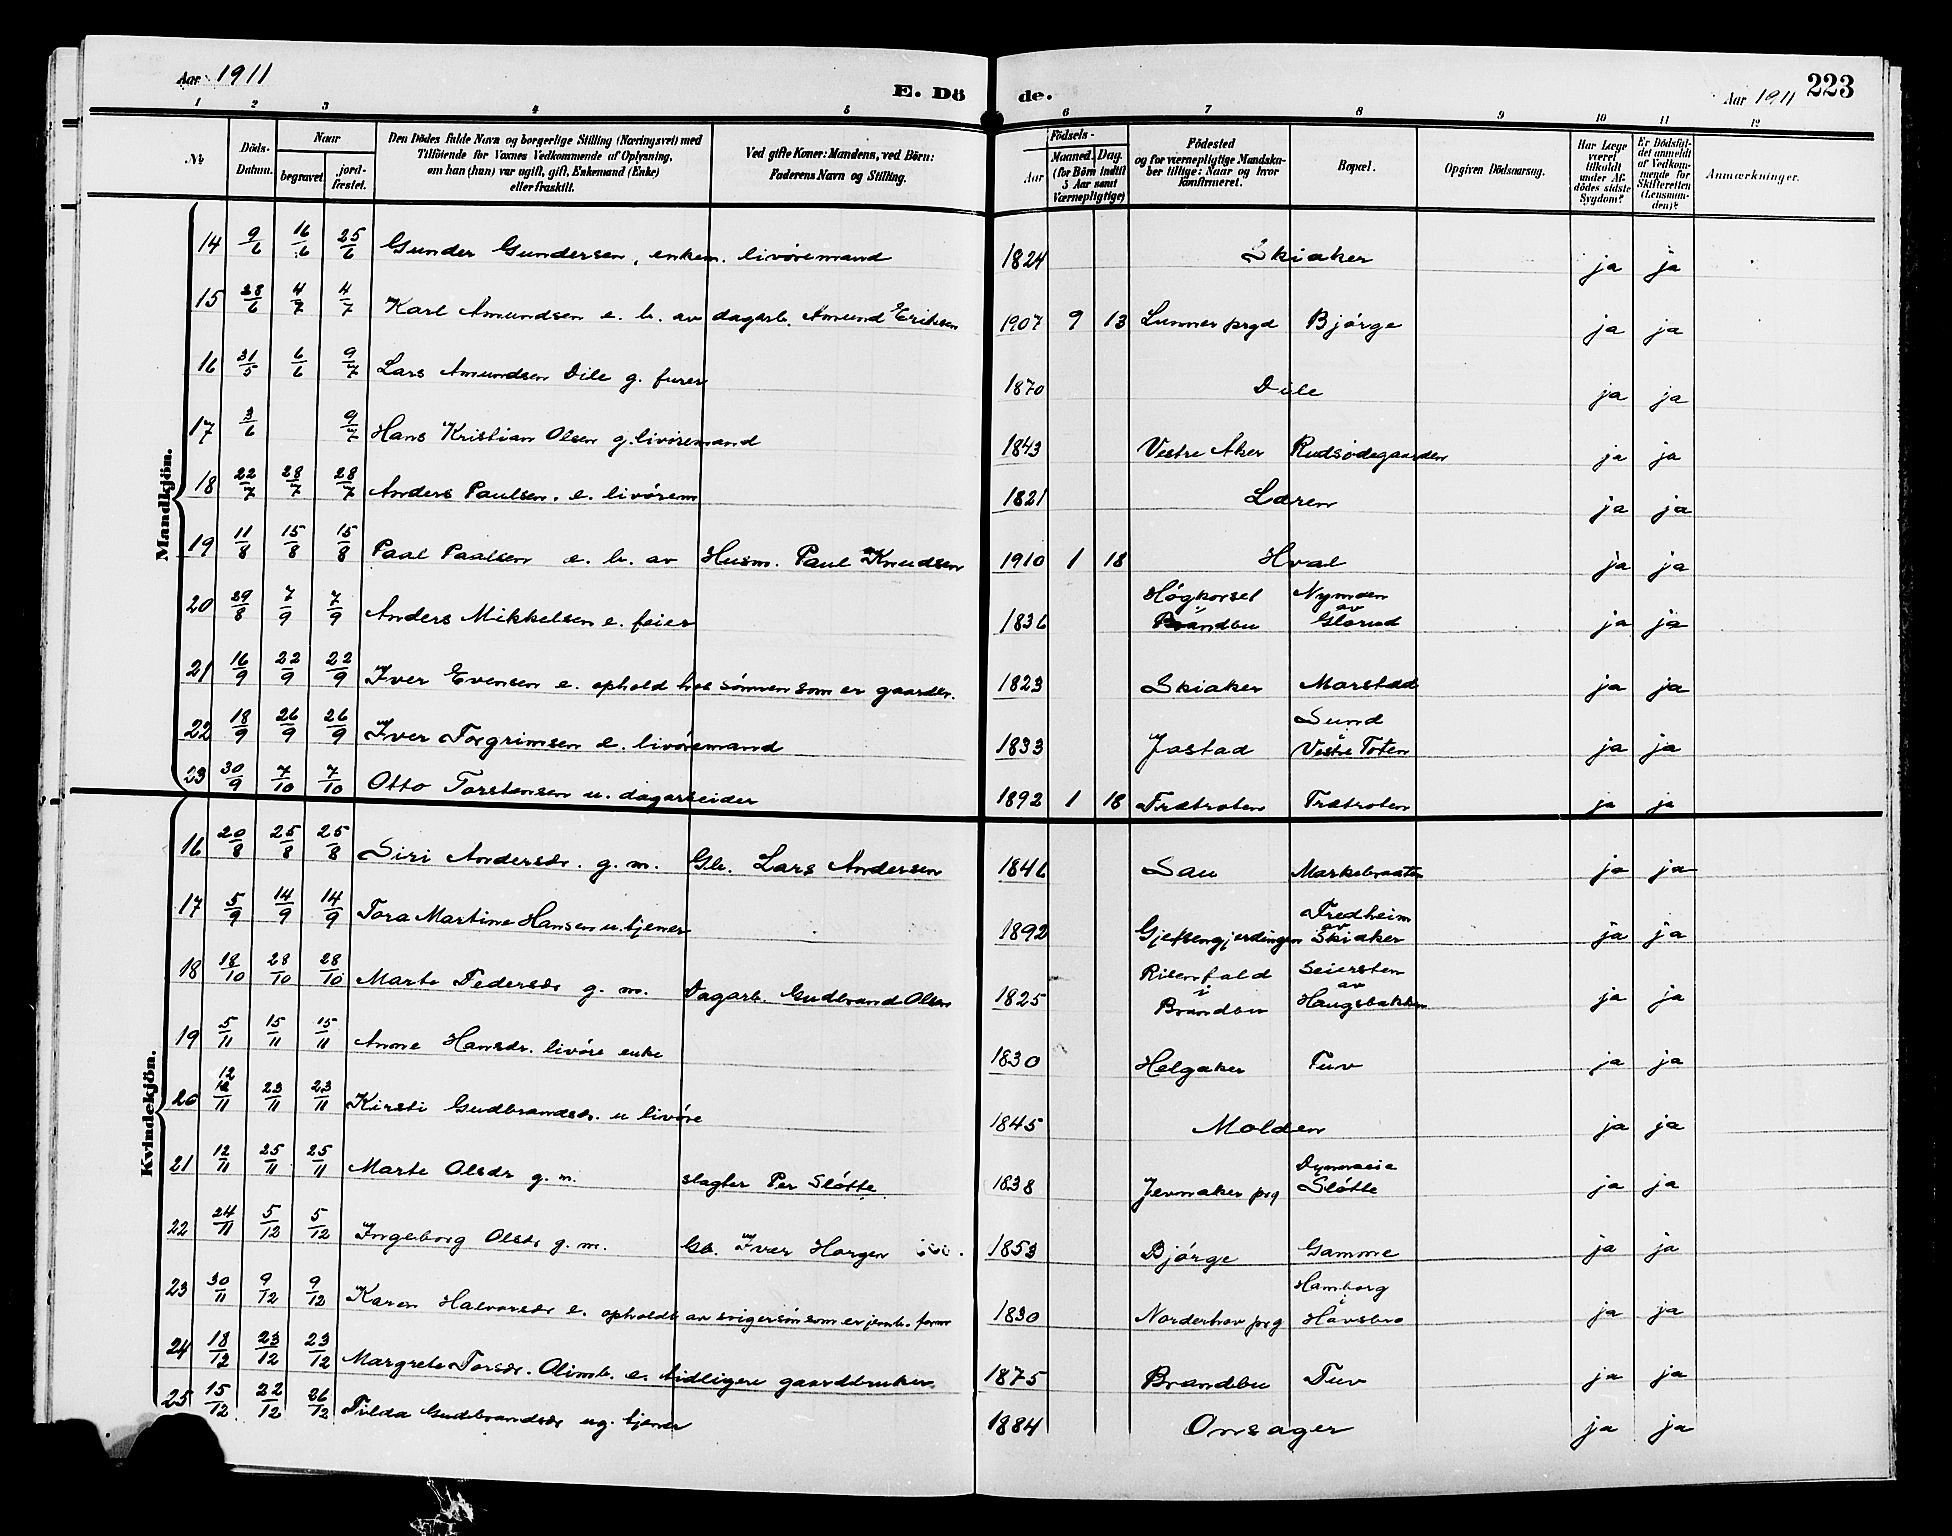 Aar 1911
E. Döde.
Aar 1911 223
1 2 3 4 5 6 7 8 9 10 11 12
No.
Döds-Datum.
Naar
begravet.
jord-fæstet.
Den Dödes fulde Navn og borgerlige Stilling (Næringsvei) med Tilföiende for Voxnes Vedkommende af Oplysning, om han (hun) var ugift, gift, Enkemand (Enke) eller fraskilt.
Ved gifte Koner: Mandens, ved Börn: Faderens Navn og Stilling.
Födsels-
Aar
Maaned. Dag.
(for Börn indtil 5 Aar samt Værnepligtige)
Födested og for værnepligtige Mandskaber tillige: Naar og hvor konfirmeret.
Bopæl.
Opgiven Dödsaarsag.
Har Læge været tilkaldt under Afdödes sidste Sygdom?
Er Dödsfaldet anmeldt af Vedkommende for Skifteretten (Lensmanden)?
Anmærkninger.
Mandkjön.
14 9/6 16/6 25/6 Gunder Gundersen, enkem. livöremand 1824 Skiaker ja ja
15 28/6 4/7 4/7 Karl Amundsen e. b. av dagarb. Amund Eriksen 1907 9 13 Lunner prgd Bjórge ja ja
16 31/5 6/6 9/7 Lars Amundsen Dile g. furer 1870 Dile ja ja
17 3/6 9/7 Hans Kristian Olsen g. livöremand 1843 Vestre Aker Rudsódegaarden ja ja
18 22/7 28/7 28/7 Anders Paulsen. e. livórem 1821 Laren ja ja
19 11/8 15/8 15/8 Paal Paalsen e. b. av Husm. Paul Knudsen 1910 1 18 Hval ja ja
20 29/8 7/9 7/9 Anders Mikkelsen e. feier 1836 Högkorset i Brandbu Nymoen av Glorud ja ja
21 16/9 22/9 22/9 Iver Evensen e. ophold hos sönnen som er gaardbr. 1823 Skiaker Morstad ja ja
22 18/9 26/9 26/9 Iver Torgrimsen e. livóremand 1833 Jostad Sund i Vestre Toten ja ja
23 30/9 7/10 7/10 Otto Torstensen u. dagarbeider 1892 1 18 Frætroten Trætroten ja ja
Kvindekjön.
16 20/8 25/8 25/8 Siri Andersdr. g. m. Gb. Lars Andersen 1846 Sau Markebraaten ja ja
17 5/9 14/9 14/9 Tora Martine Hansen u. tjener 1892 Gjefsengjerdingen Fredheim av Skiaker ja ja
18 18/10 28/10 28/10 Marte Pedersdr g. m. Dagarb. Gudbrand Olsen 1825 Risenfald i Brandbu Seiersten av Haugsbakken ja ja
19 5/11 15/11 15/11 Anne Hansdr. livóre enke 1830 Helgaker Tuv ja ja
20 12/11 23/11 23/11 Kirsti Gudbrandsdr. u livóre 1845 Molden ja ja
21 12/11 25/11 25/11 Marte Olsdr g. m. slagter Per Slótte 1838 Jevnaker prg Dynnaeie Slótte ja ja
22 24/11 5/12 5/12 Ingeborg Olsdr g. m. Gb. Iver Horgen 1853 Bjórge Gamme ja ja
23 30/11 9/12 9/12 Karen Halvorsdr e. opholdt av svigersön som er jernb. form 1830 Norderhov prg Hamborg i Hávsbro ja ja
24 18/12 23/12 23/12 Margrete Torsdr. Olimb. e. tidligere gaardbruker. 1875 Brandbu Tuv ja ja
25 15/12 22/12 26/12 Tilda Gudbrandsdr ug. tjener 1884 Onsager ja ja